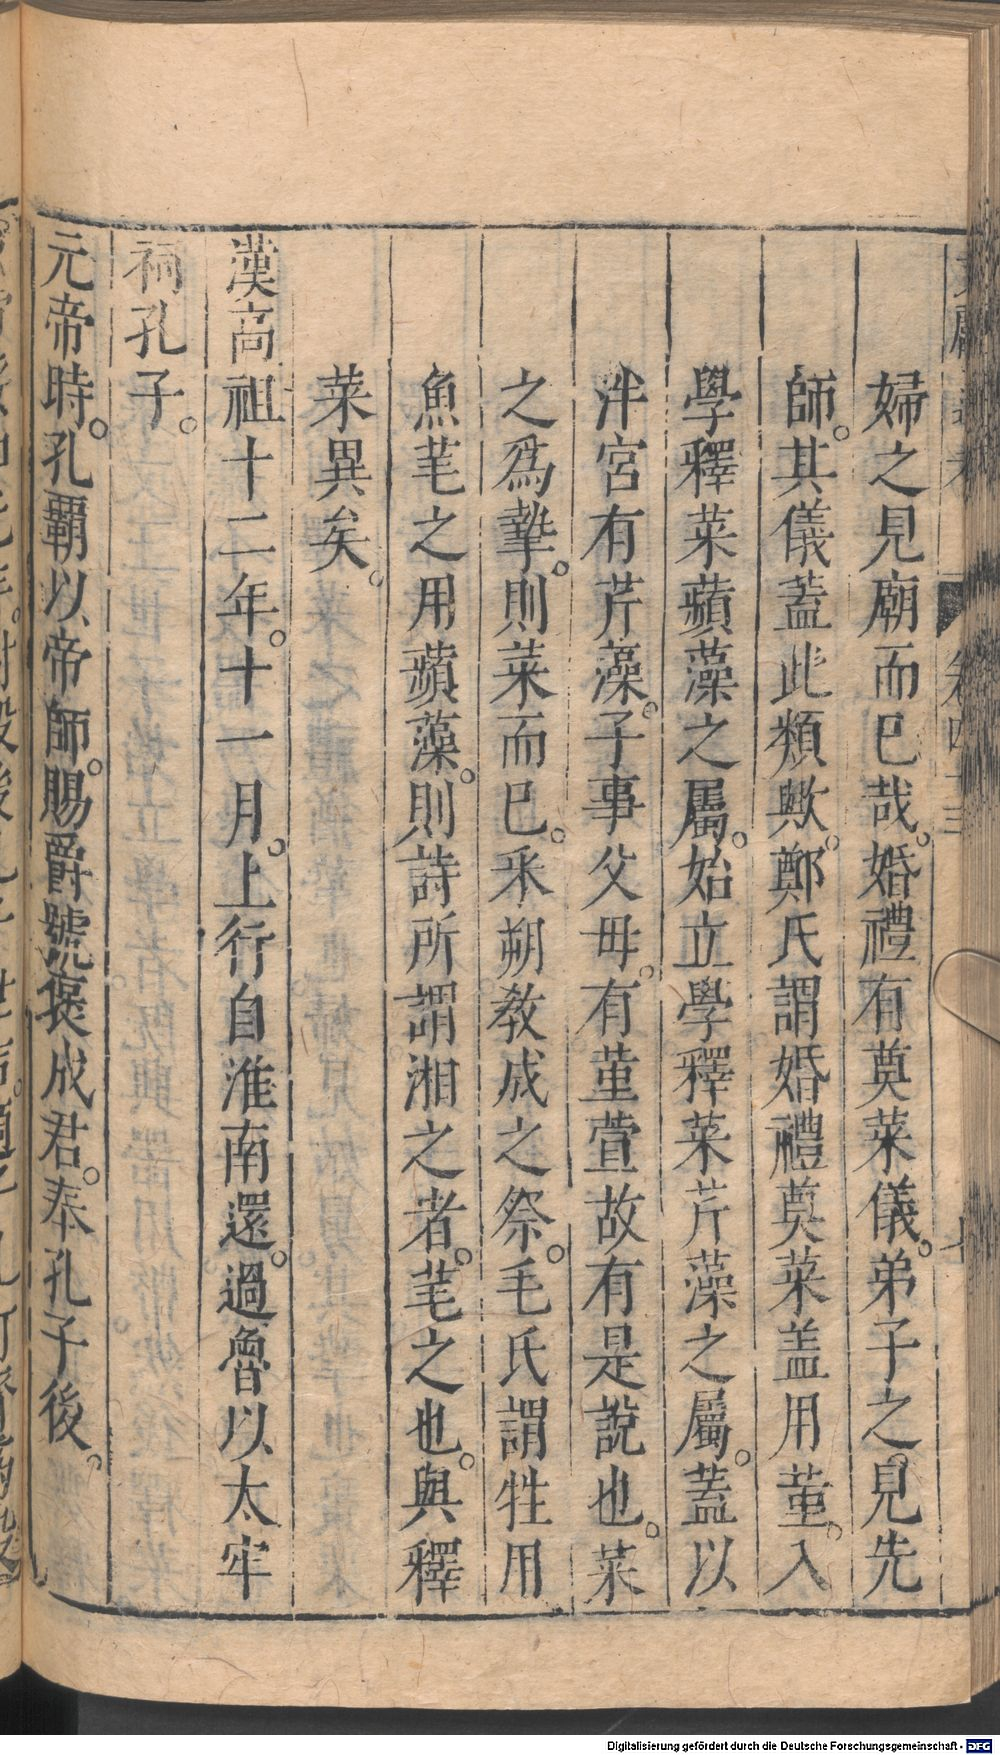 婦之見廟而已哉。婚禮有奠菜儀。弟子之見先
師。其儀蓋此類歟。鄭氏謂婚禮奠菜盖用菫。入
學釋菜蘋藻之屬。始立學釋菜芹藻之屬。蓋以
泮宮有芹藻。子事父母。有菫萱故有是說也。菜
之爲摯。則菜而已。采朔敎成之祭。毛氏謂牲用
魚芼之用蘋藻。則詩所謂湘之者。芼之也。與釋
菜異矣。
漢高祖十二年。十一月。上行自淮南還。過魯以太牢
祠孔子。
元帝時。孔覇以帝師。賜爵號褒成君。奉孔子後。
卷四十三
Digitalisierung gefördert durch die Deutsche Forschungsgemeinschaft - DFG